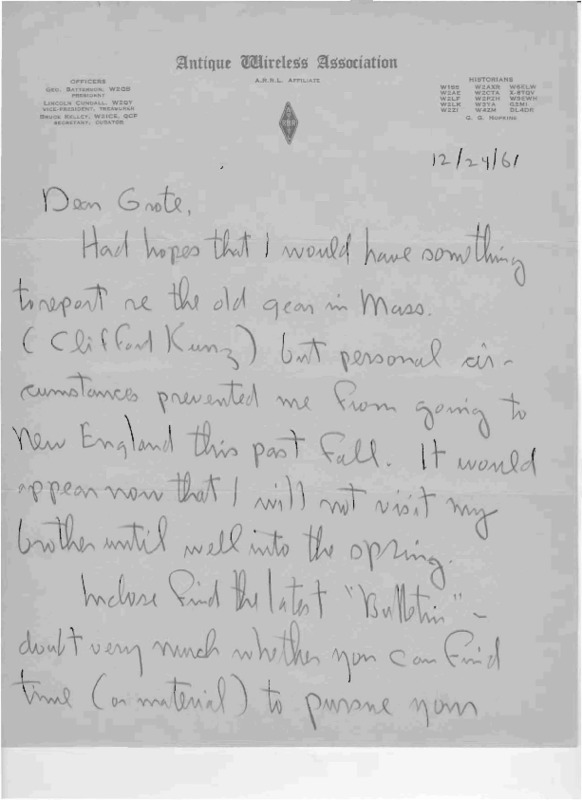 Antique Wireless Association
A.R.R.L. AFFILIATE
OFFICERS
GEO. BATTERSON, W2GB
PRESIDENT
LINCOLN CUNDALL, W2QY
VICE-PRESIDENT, TREASURER
BRUCE KELLEY, W2ICE, QCP
SECRETARY, CURATOR
HISTORIANS
G. G. HOPKINS
12/24/61
Dear Grote,
Had hopes that I would have something
to report re the old gear in Mass.
(Clifford Kunz) but personal cir-
cumstances prevented me from going to
New England this past Fall. It would
appear now that I will not visit my
brother until well into the spring.
Inclose find the latest "Bulletin" -
doubt very much whether you can find
time (or material) to pursue your